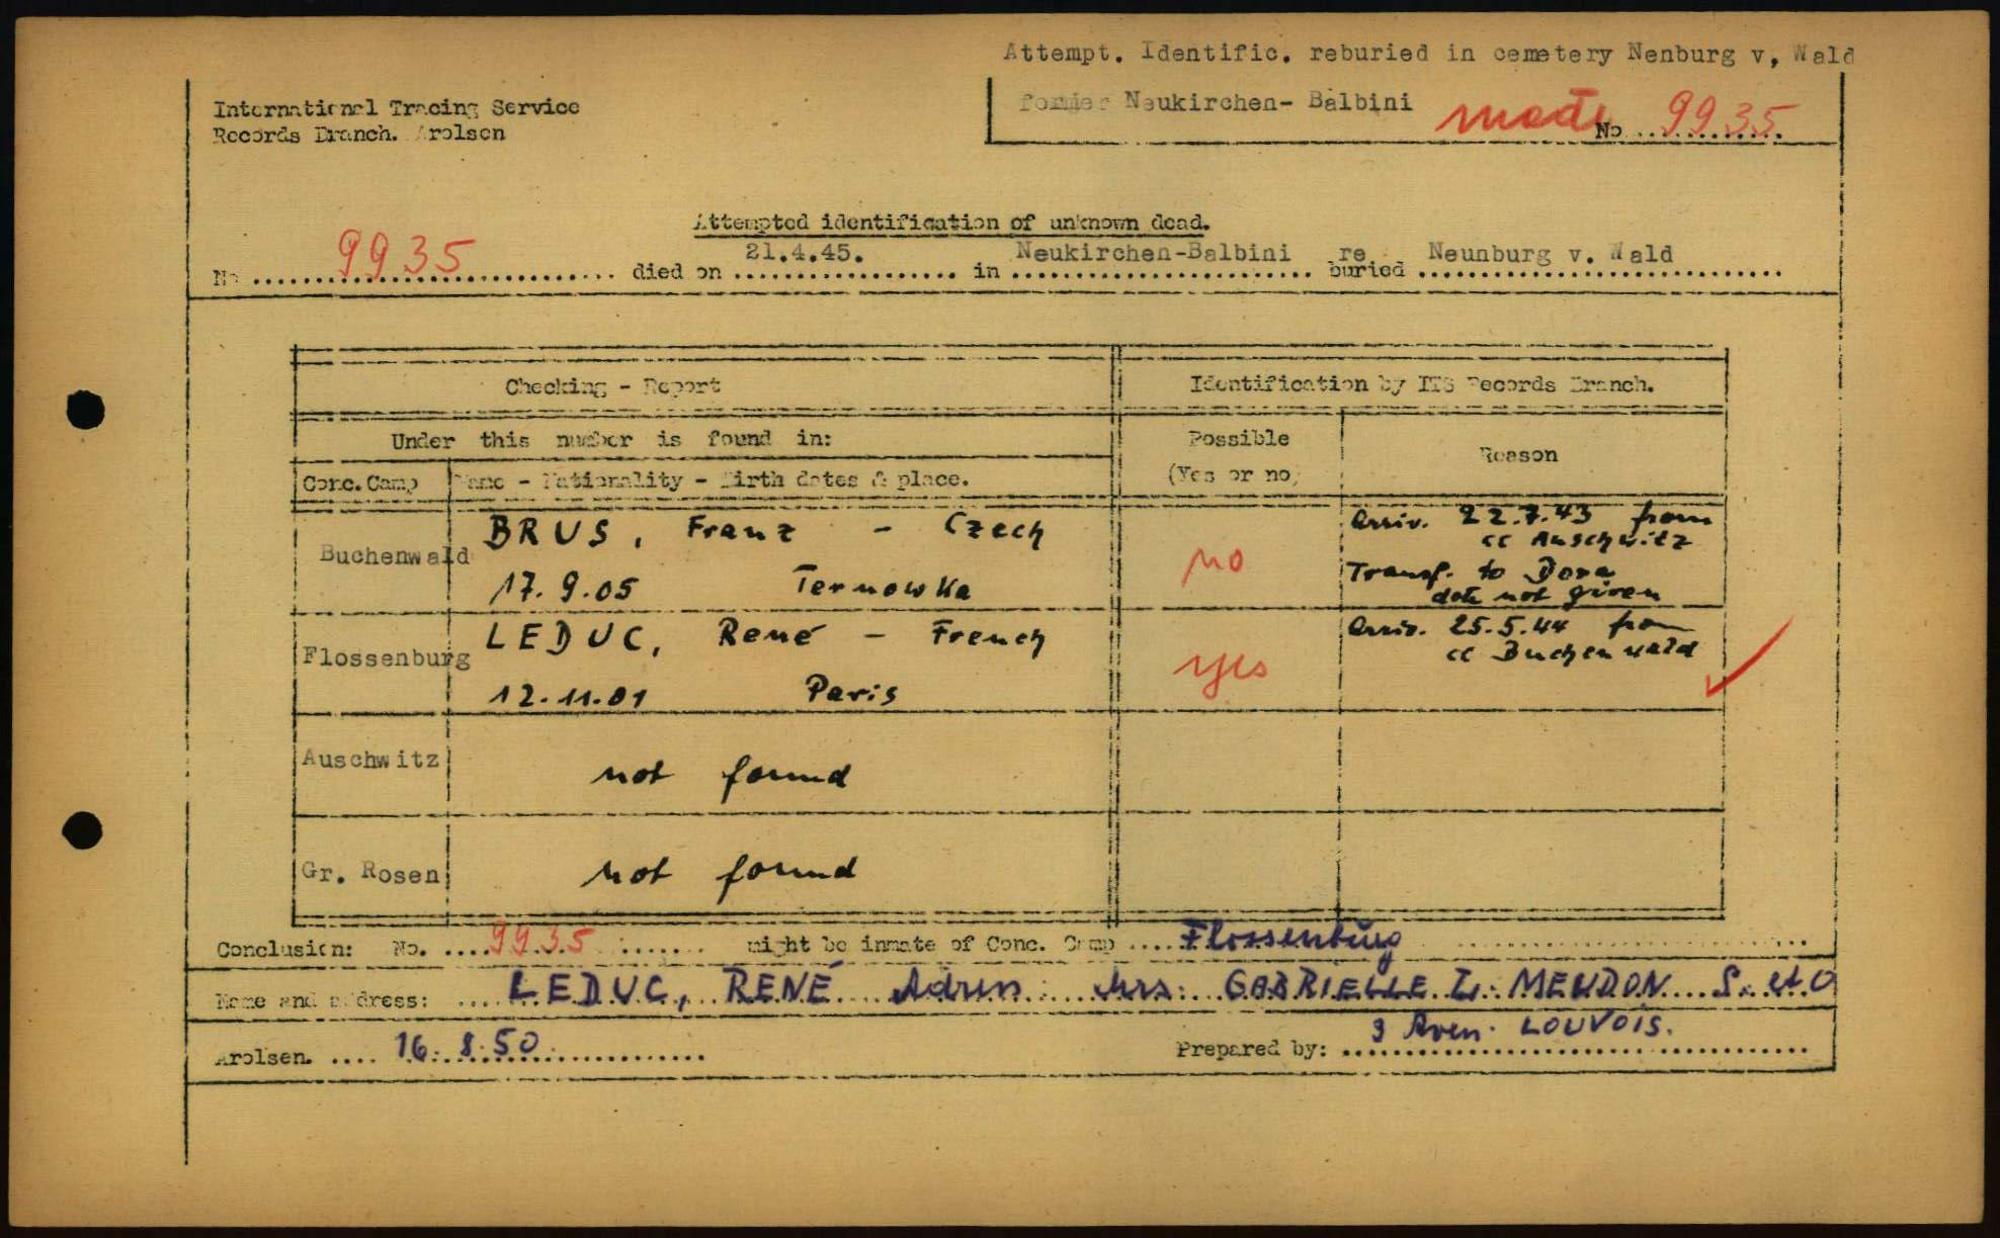 Attempt. Identific. reburied in cemetery Nenburg v, Wald
former Neukirchen- Balbini
made No ..9935......
International Tracing Service
Records Branch. Arolsen
Attempted identification of unknown dead.
No ....9935.... died on ....21.4.45..... in ....Neukirchen-Balbini.... re buried ....Neunburg v. Wald....
Checking - Report
Identification by ITS Records Branch.
Under this number is found in:
Possible
(Yes or no)
Reason
Conc. Camp
Name - Nationality - Birth dates & place.
Buchenwald
BRUS, Franz - Czech
17.9.05 Ternowka
no
Arriv. 22.7.43 from
cc Auschwitz
Transf. to Dora
date not given
Flossenburg
LEDUC, René - French
12.11.01 Paris
yes
Arriv. 25.5.44 from
cc Buchenwald
Auschwitz
not found
Gr. Rosen
not found
Conclusion: No. ....9935.... might be inmate of Conc. Camp ....Flossenbürg....
Name and address: ....LEDUC, RENÉ Mrs. GABRIELLE L. MEUDON S. et O
3 Aven. LOUVOIS.
Arolsen. ....16.8.50....
Prepared by: ....